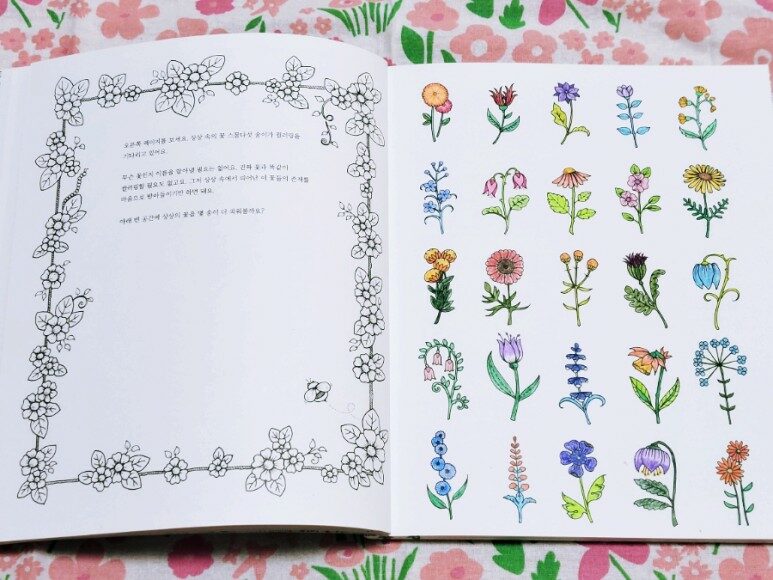 오른쪽 페이지를 보세요. 상상 속의 꽃 스물다섯 송이가 컬러링을
기다리고 있어요.
무슨 꽃인지 이름을 알아낼 필요는 없어요. 진짜 꽃과 똑같이
컬러링할 필요도 없고요. 그저 상상 속에서 피어난 이 꽃들의 존재를
마음으로 받아들이기만 하면 돼요.
아래 빈 공간에 상상의 꽃을 몇 송이 더 피워볼까요?